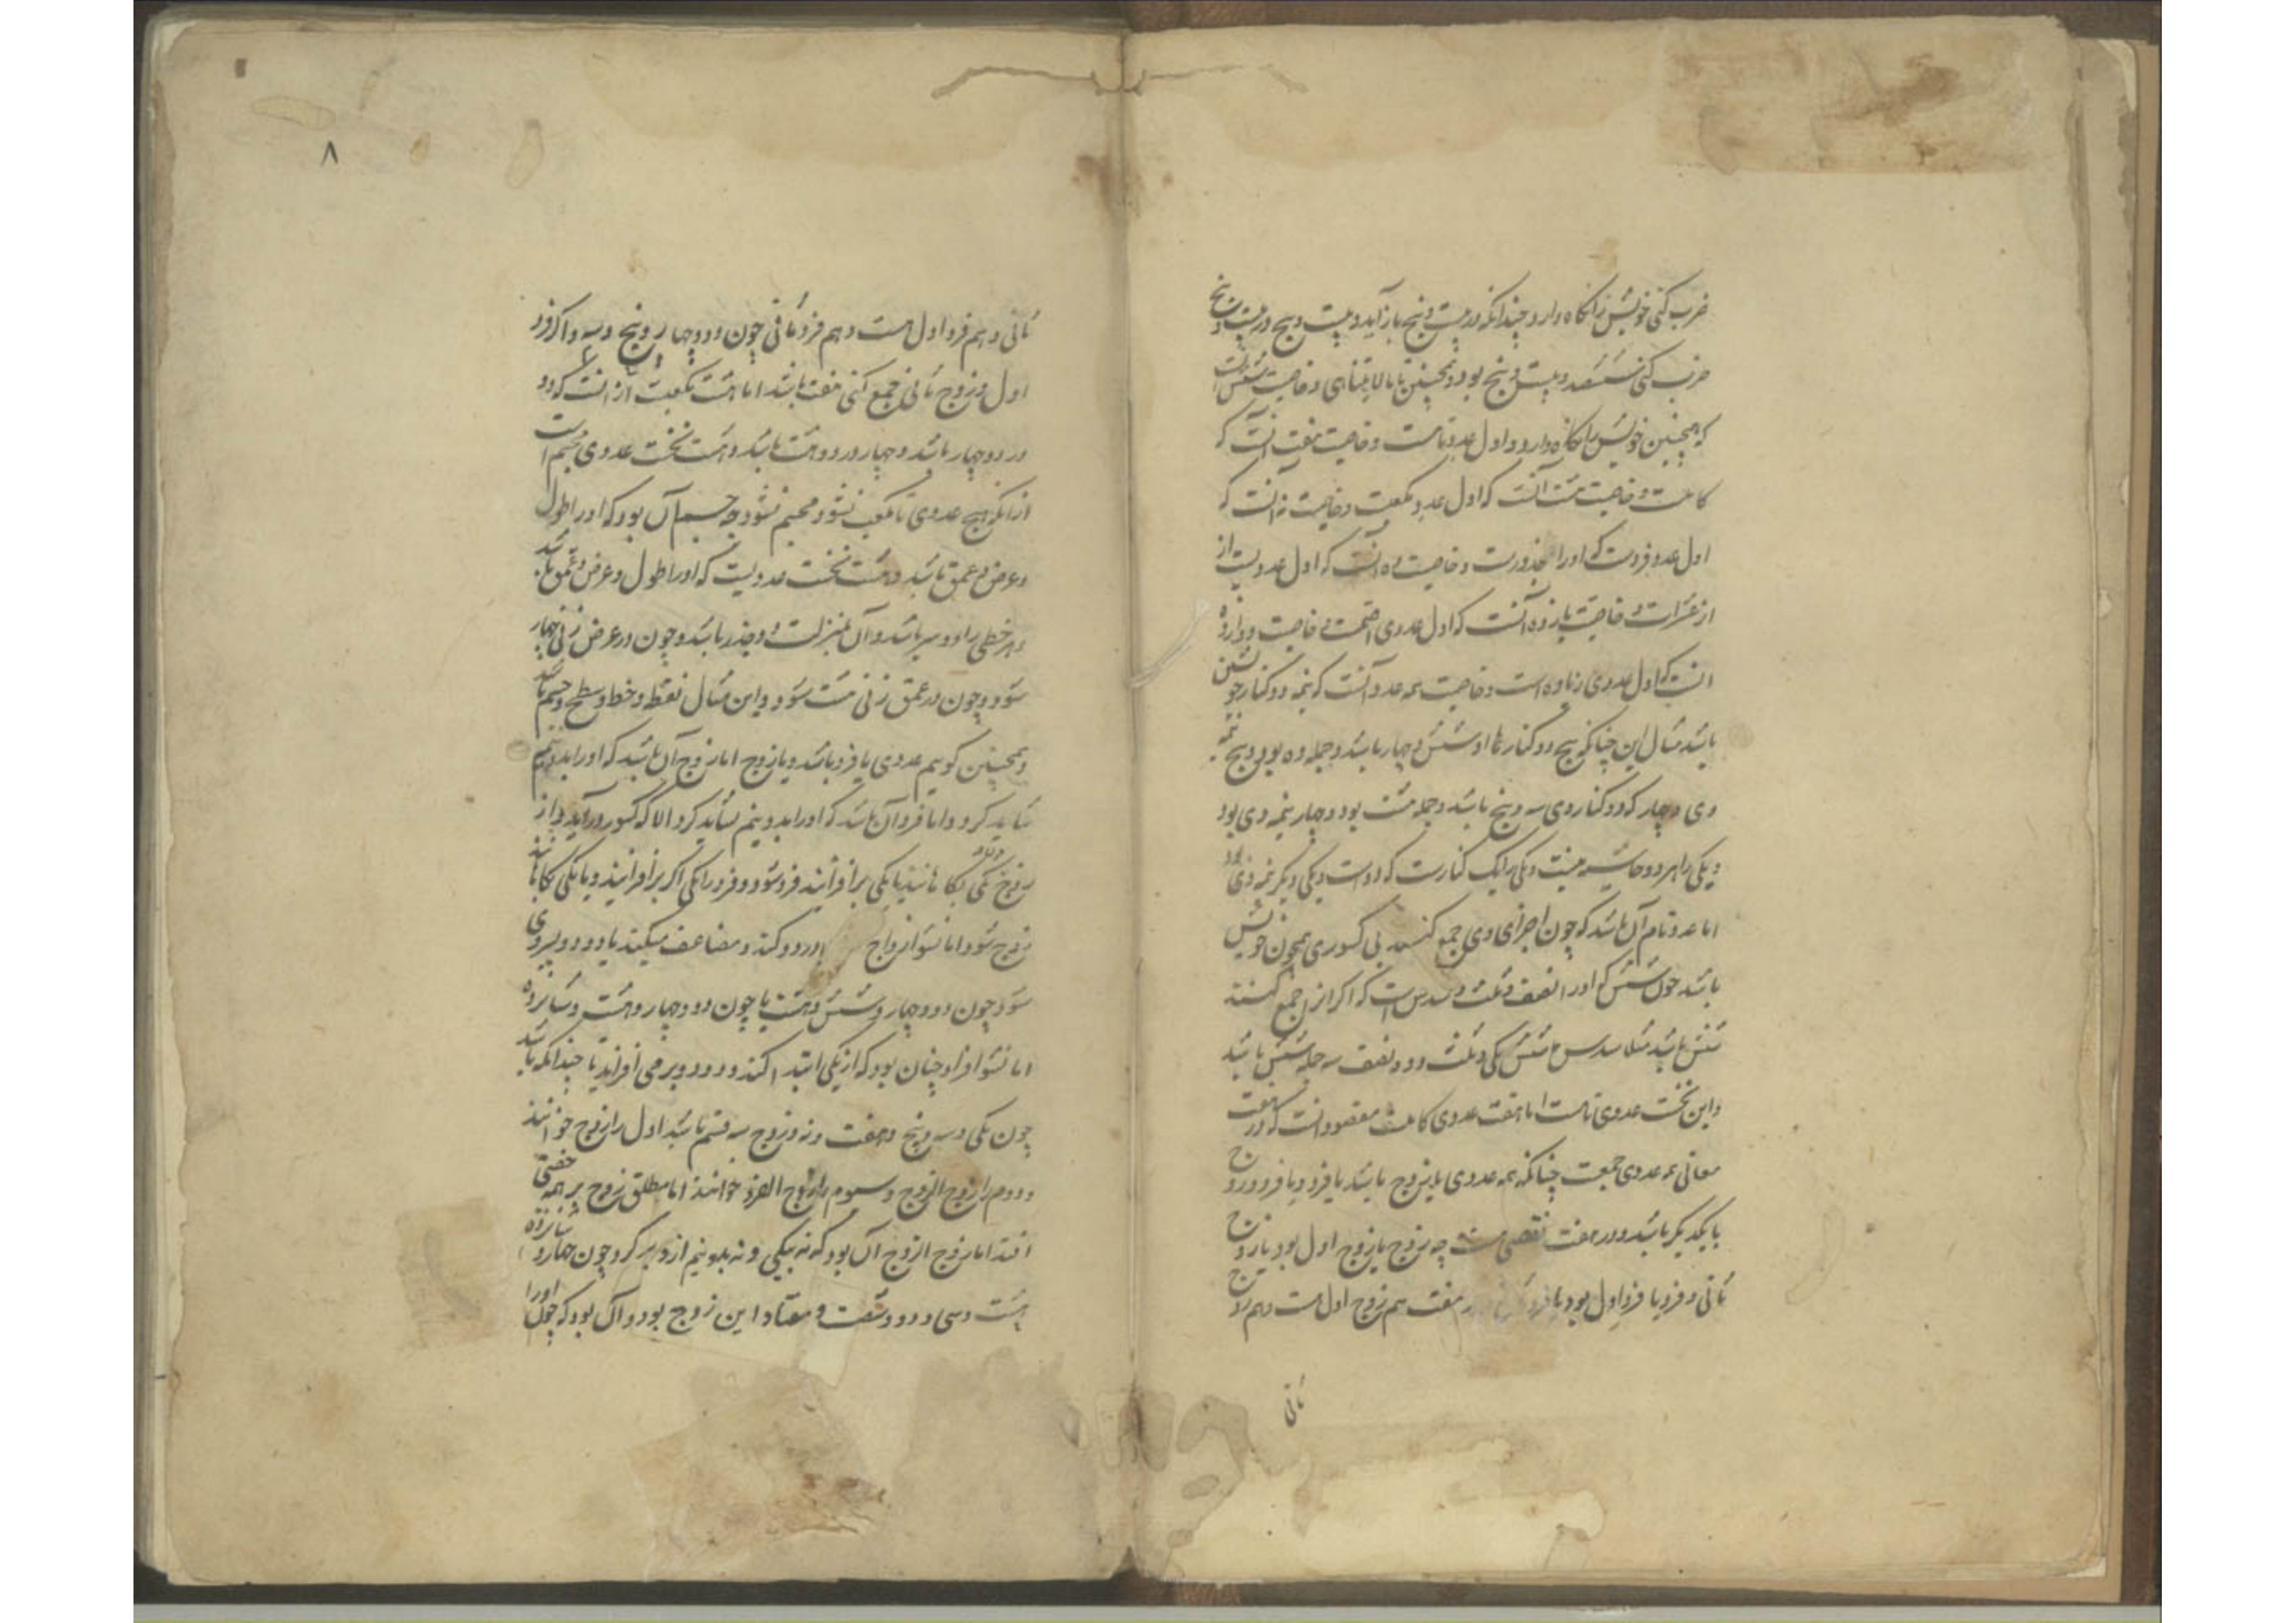 ضرب کنی خویش را نگاه دارد چندانکه در بیست و پنج باز آید و بیست و پنج در بیست و پنج
ضرب کنی ششصد و بیست و پنج بود و همچنین تا بالا یتناهی و خاصیت شش انست
که همچنین خویش را نگاه دارد و اول عدد تامست و خاصیت هفت انست که
کاملست و خاصیت هشت آنست که اول عدد مکعبست و خاصیت نه آنست که
اول عدد فردست که او را مجذورست و خاصیت ده آنست که اول عددیست از
از عشرات و خاصیت یازده آنست که اول عددی اصمست و خاصیت دوازده
انست که اول عددی زیاده است و خاصیت همه عدد آنست که نیمه دو کنار خویشتن
باشد مثال این چنانکه پنج دو کنارهٔ او شش و چهار باشد و جمله ده بود و پنج نیمه
وی و چهار که دو کنار وی سه و پنج باشد و جمله هشت بود و چهار نیمه وی بود
و یکی را هر دو حاشیه نیست و یکی را یک کنارست که دو است و یکی دیگر نیمه وی بود
اما عدد تام آن باشد که چون اجزای وی جمع کنند بی کسوری همچون خویش
باشد چون شش که او را نصف و ثلث و سدس است که اگر از جمع کنند
شش باشد مثلا سدس شش یکی و ثلث دو و نصف سه جمله شش باشد
و این نخست عددی تامست اما هفت عددی کاملست مقصود انست که در هفت
معانی همه عددی جمعست چنانکه همه عددی یا زوج باشد یا فرد و یا فرد و زوج
با یکدیگر باشد و در هفت نقصی نیست چه زوج یا زوج اول بود یا زوج
ثانی و فرد یا فرد اول بود یا فرد ثانی و در هفت هم زوج اول است و هم زوج
ثانی
۸
ثانی و هم فرد اول است و هم فرد ثانی چون دو و چهار و پنج و سه و اگر فرد
اول و زوج ثانی جمع کنی هفت باشد اما هشت مکعبست از انست که دو
در دو چهار باشد و چهار در دو هشت باشد و هشت نخست عددی مجسم است
از انکه هیچ عددی تا مکعب نشود مجسم نشود چه جسم آن بود که او را طول
و عرض و عمق باشد و هشت نخست عددیست که او را طول و عرض و عمق باشد
و هر خطی را دو سر باشد و آن بمنزلت دو جذر باشد و چون در عرض زنی چهار
شود و چون در عمق زنی هشت شود و این مثال نقطه و خط و سطح و جسم باشد
و همچنین گویم عددی یا فرد باشد و یا زوج اما زوج آن باشد که او را بدو نیم
شاید کرد و اما فرد آن باشد که او را بدو نیم نشاید کرد الا که کسور در آید و از
زوج یکی بکاهانند یا یکی بر افزایند فرد شود و فرد را یکی اگر بر افزایند و یا یکی بکاهانند
زوج شود اما نشو ازواج در دو کنند و مضاعف میکنند یا دو دو بروی
شود چون دو و چهار و شش و هشت یا چون دو و چهار و هشت و شانزده
اما نشو افراد چنان بود که از یکی ابتدا کنند و دو دو بر می افزاید یا چندانکه باشد
چون یکی و سه و پنج و هفت و نه و زوج سه قسم باشد اول را زوج خوانند
و دوم را زوج الزوج و سیوم را زوج الفرد خوانند اما مطلق زوج بر همه جفتی
افتد اما زوج الزوج آن بود که نه بیکی و نه بدو نیم از و بر گرد چون چهار و شانزده
هشت و سی و دو و شصت و هفتاد این زوج بود و آن بود که چون او را